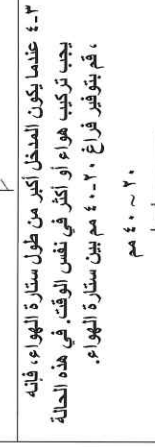 ٣-٤ عندما يكون المدخل أكبر من طول ستارة الهواء، فإنه
يجب تركيب هواء أو أكثر في نفس الوقت. في هذه الحالة
، قم بتوفير فراغ ٢٠-٤٠ مم بين ستارة الهواء.
٢٠ ~ ٤٠ مم